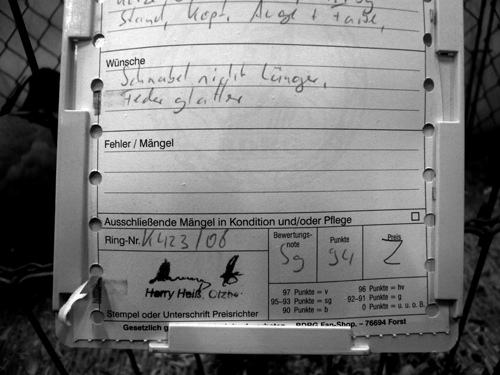 Stand, Kopf, Auge + Farbe,
Wünsche
Schnabel nicht länger,
Feder glatter
Fehler / Mängel
Ausschließende Mängel in Kondition und/oder Pflege
Ring-Nr. K423/06
Bewertungs-
note
Sg
Punkte
94
Preis
Z
Harry Heiß,
97 Punkte = v 96 Punkte = hv
95–93 Punkte = sg 92–91 Punkte = g
90 Punkte = b 0 Punkte = u. o. B.
Stempel oder Unterschrift Preisrichter
Gesetzlich BDRG Fan-Shop. - 76694 Forst